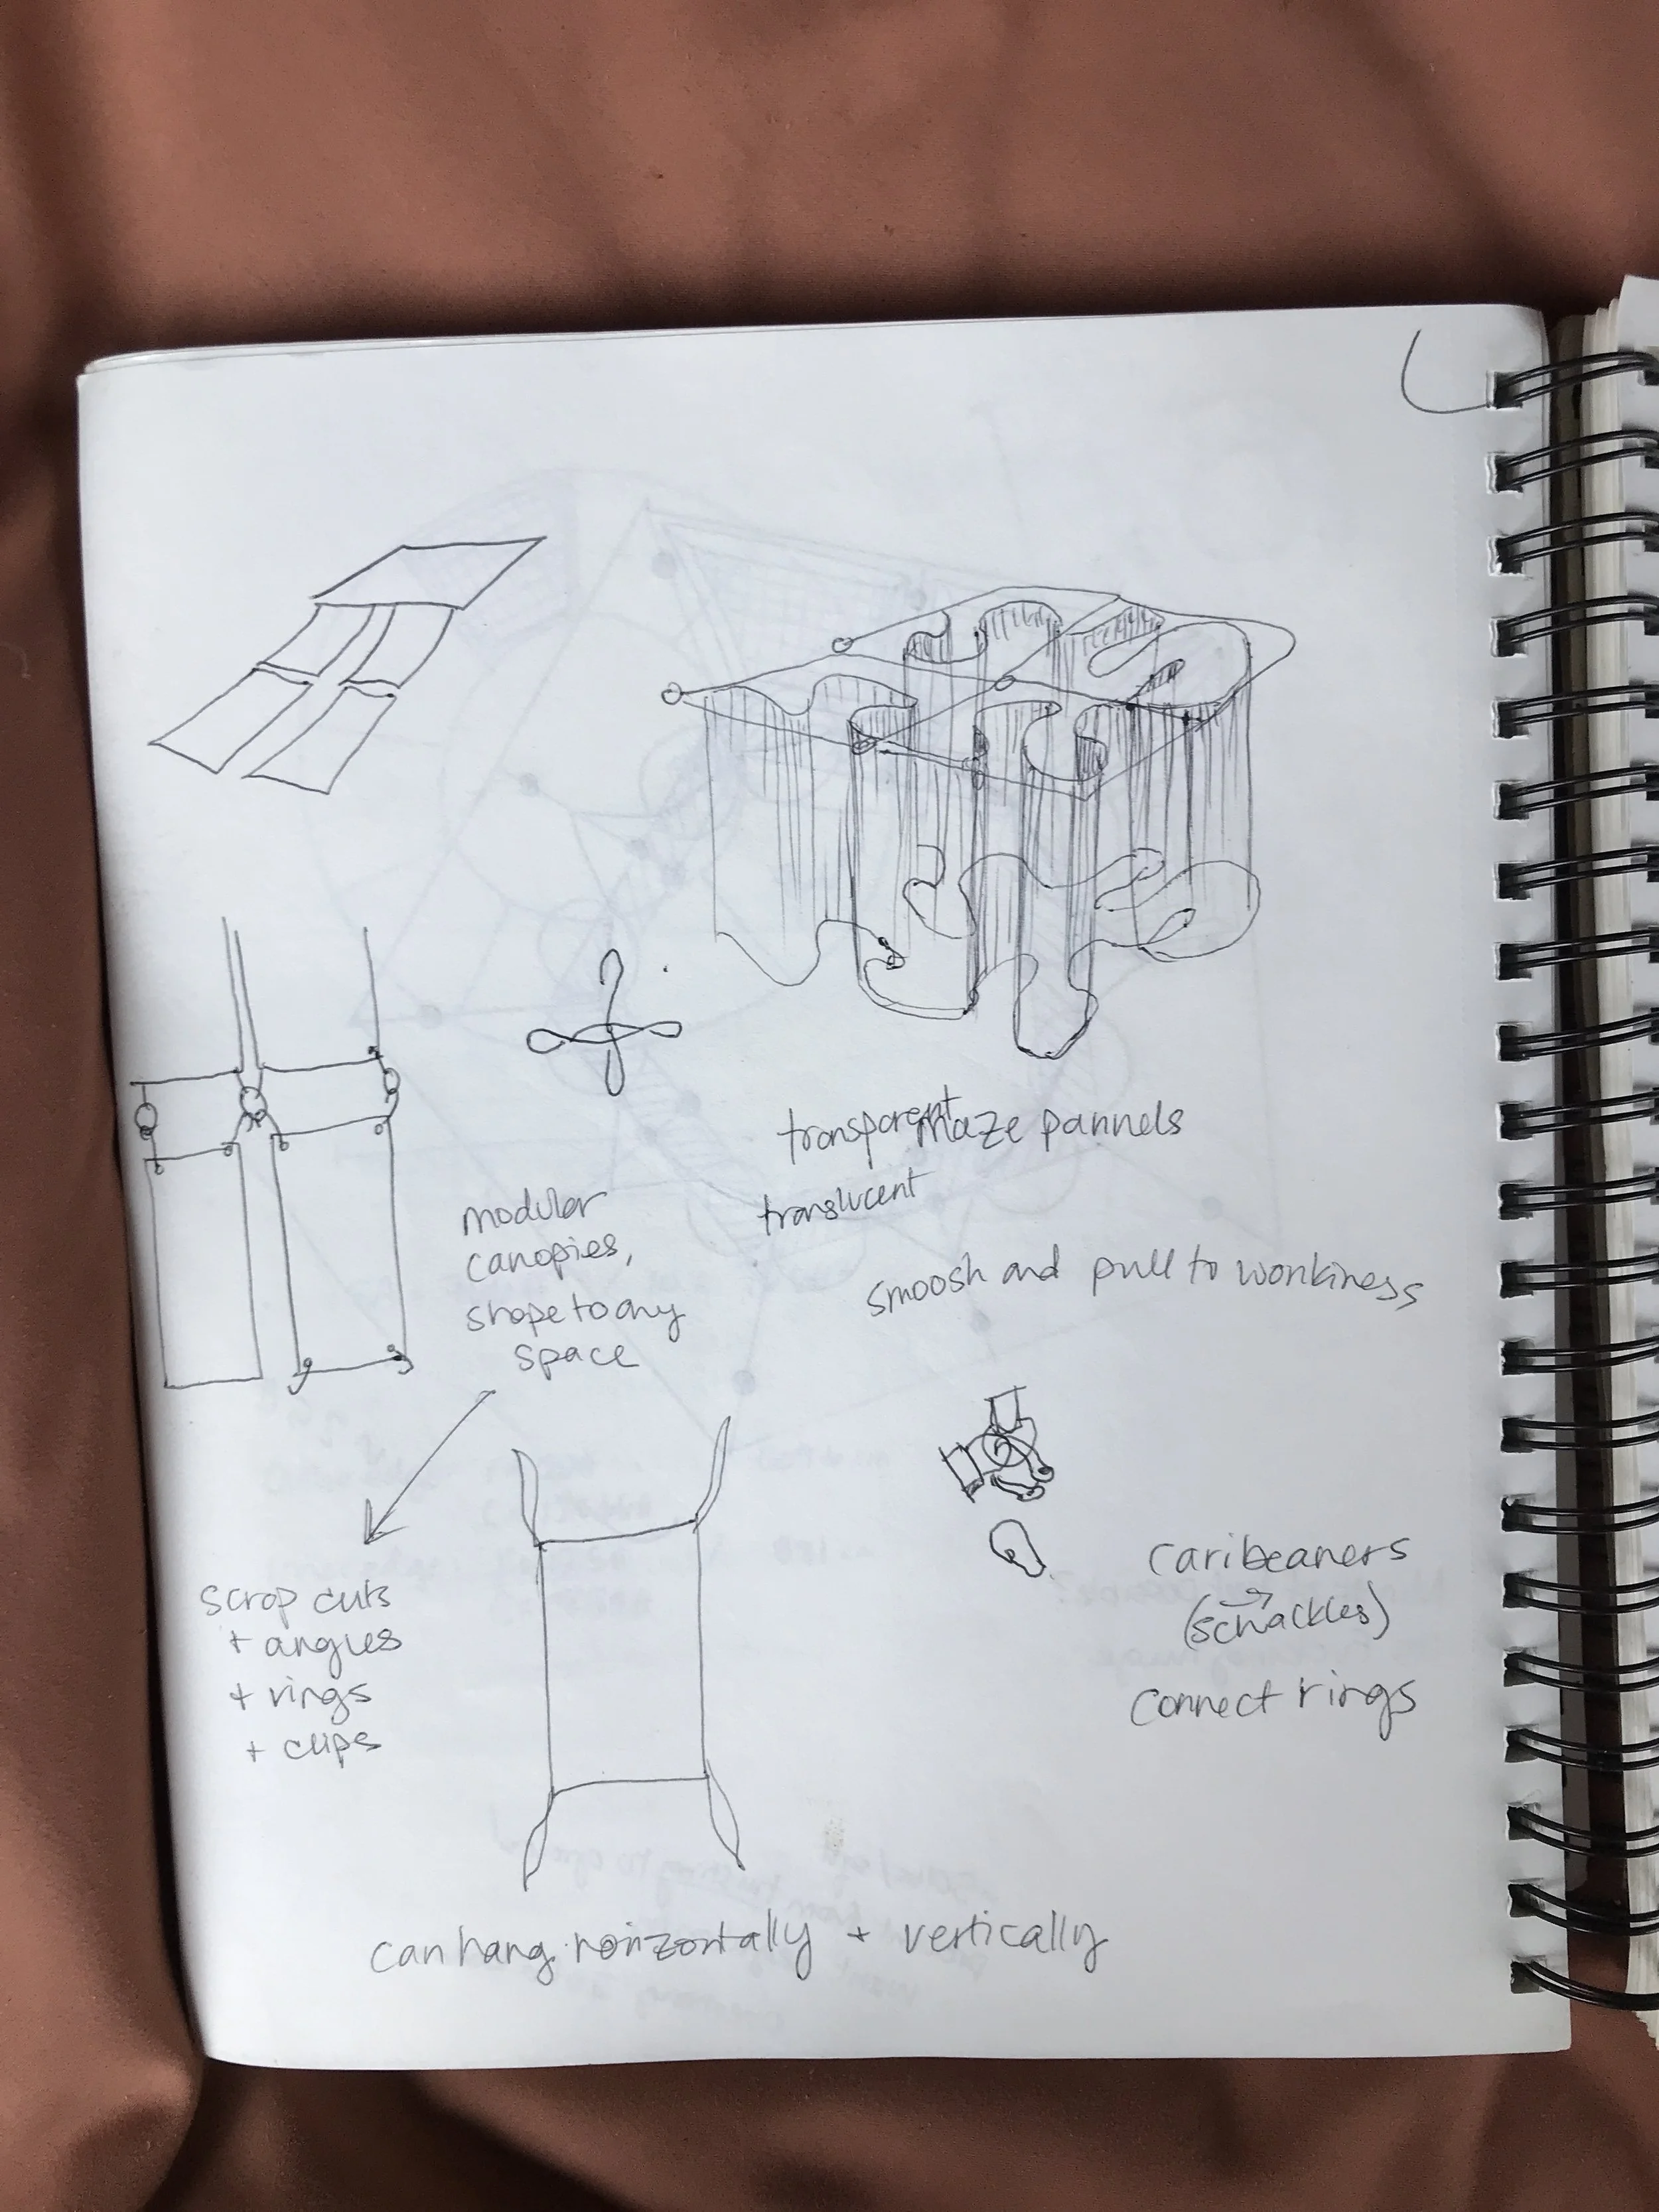 transparent maze pannels
translucent
modular
canopies,
shape to any
space
smoosh and pull to wonkiness
scrap cuts
+ angles
+ rings
+ clips
caribeaners
(schackles)
connect rings
can hang horizontally + vertically